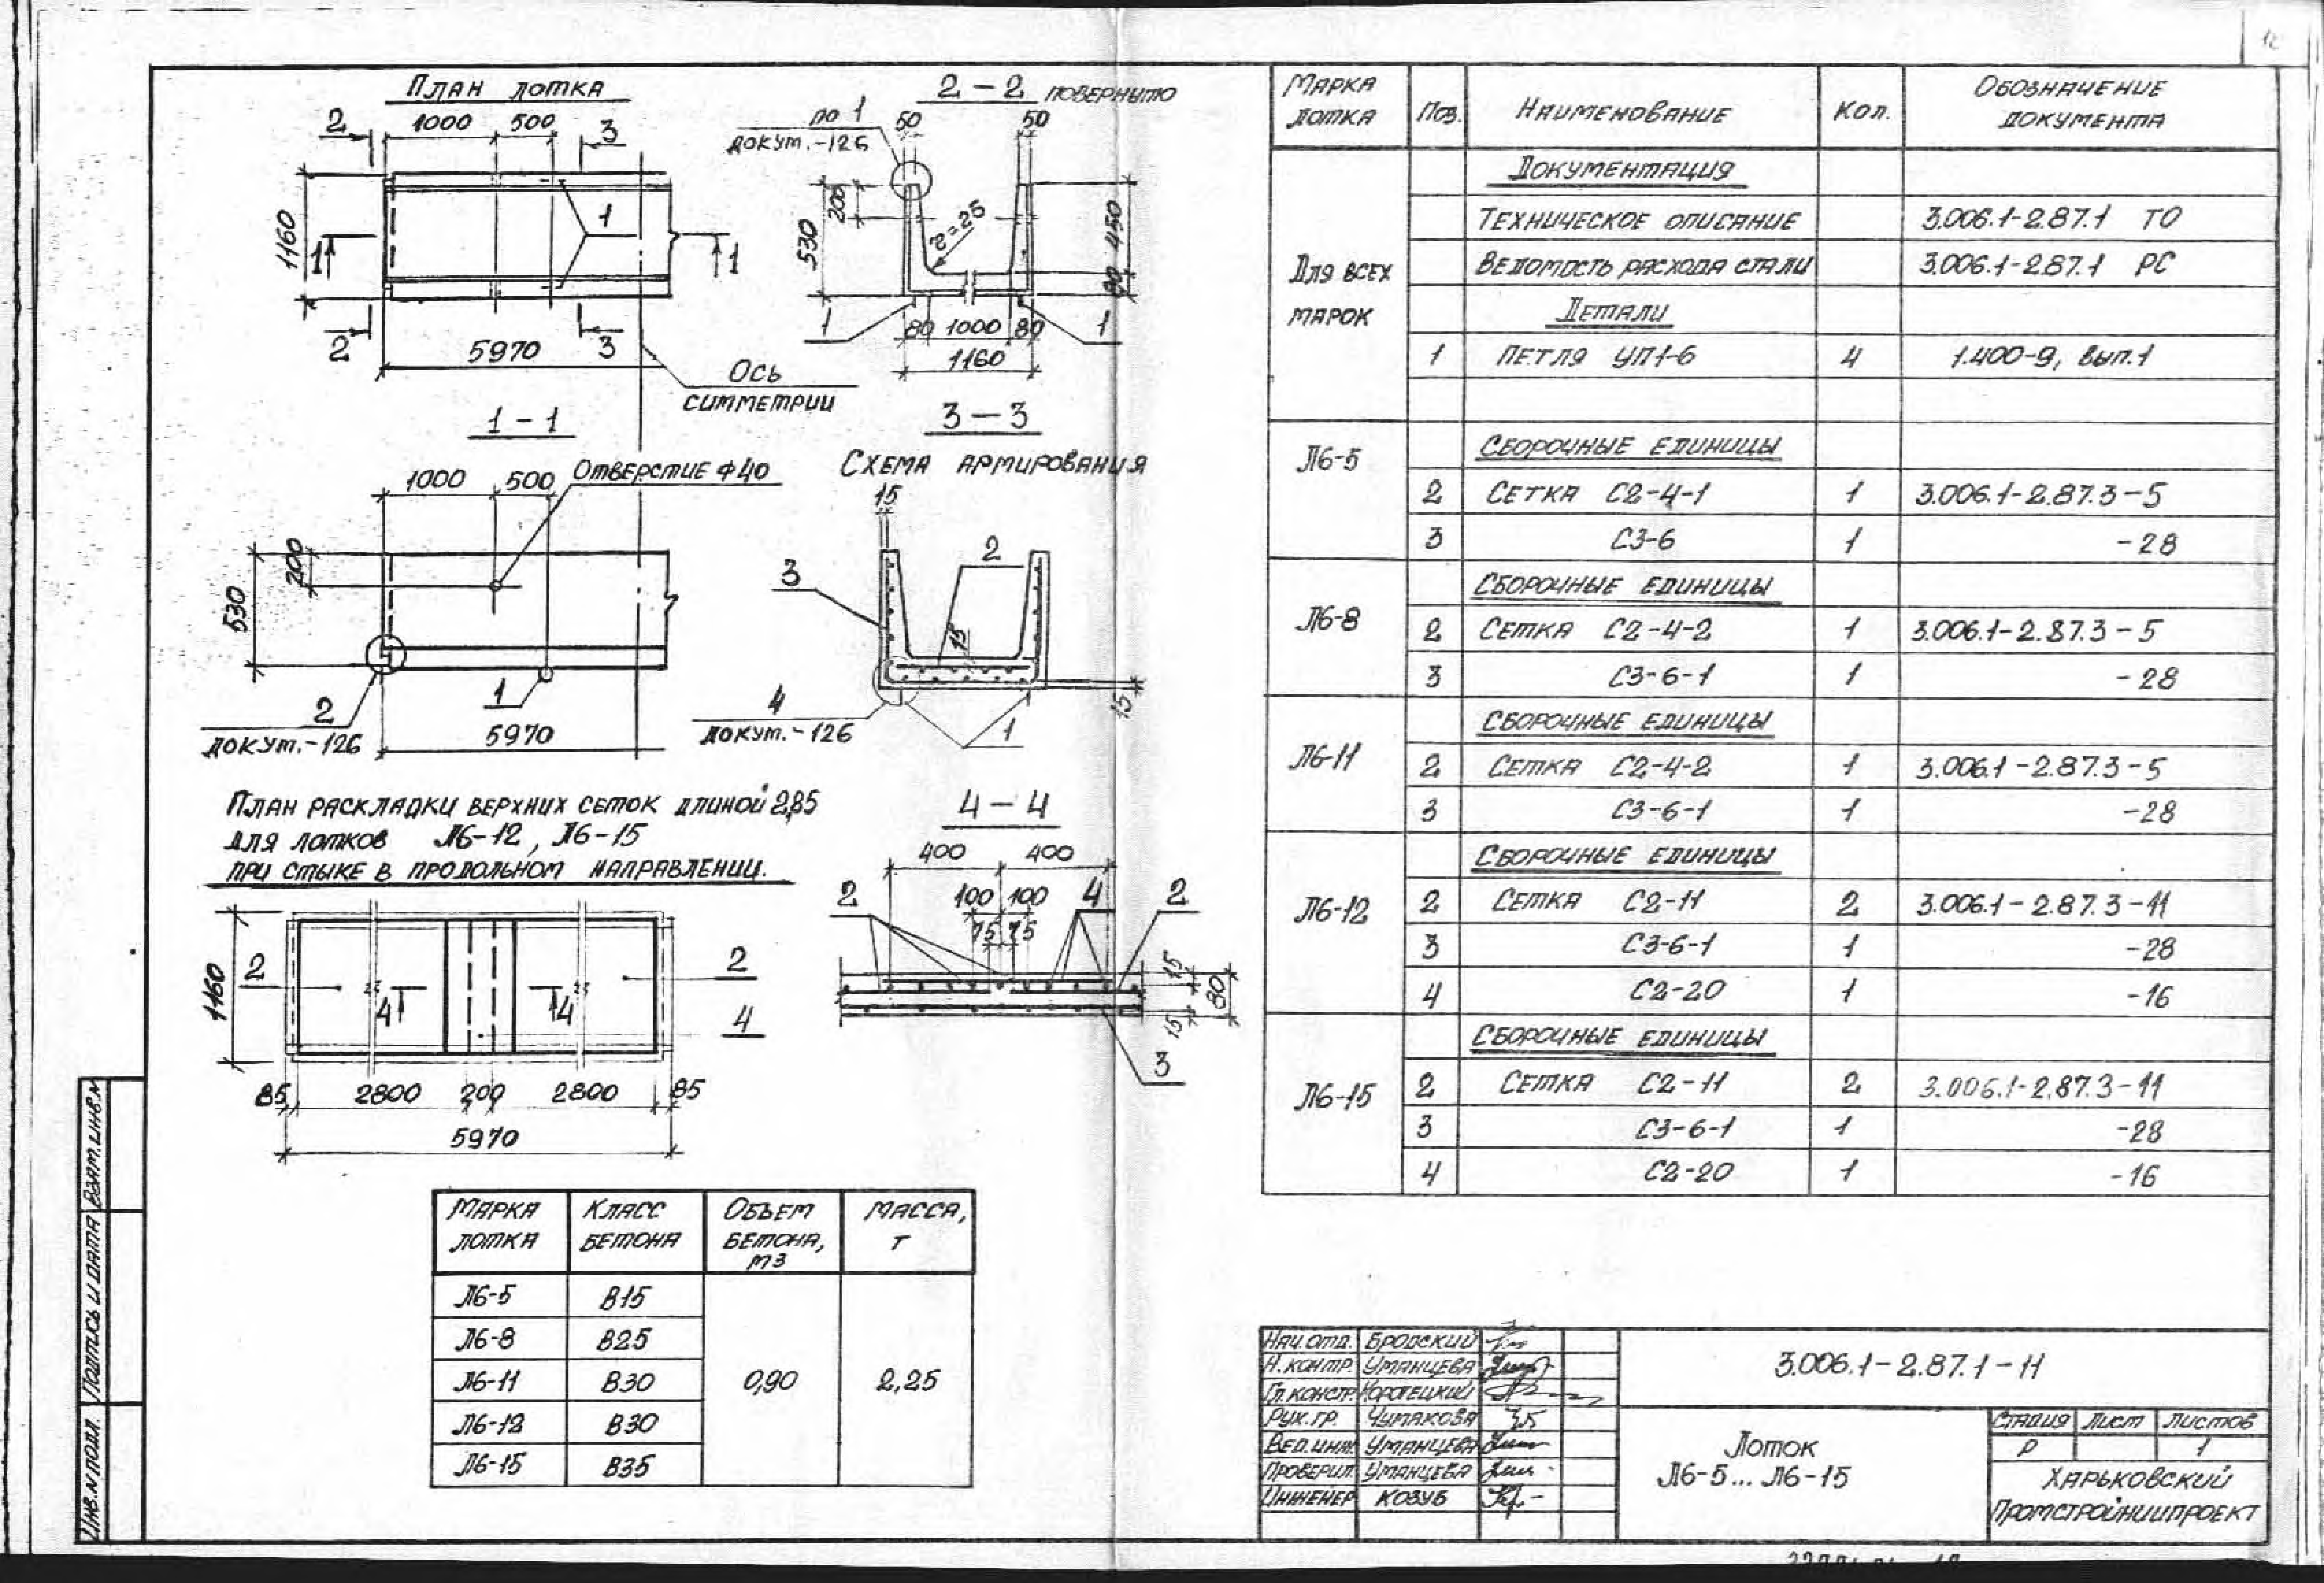 План лотка
2 1000 500 3
1160
1 1 1
2 5970 3
Ось
симметрии
2-2 повернуто
по 1
докут.-126
50 50
200
530
r=25
450
80
1 80 1000 80 1
1160
1-1
1000 500 Отверстие ф40
200
530
2
докут.-126
1
5970
3-3
Схема армирования
15
3 2
15
4
докут.-126
1
15
План раскладки верхних сеток длиной 2,85
для лотков Л6-12, Л6-15
при стыке в продольном направлении.
1160
2 4 4 2
4
85 2800 200 2800 85
5970
4-4
400 400
2 100 100 4 2
75 75
15
80
15
3
Марка лотка Класс бетона Объем бетона, м3 Масса, т
Л6-5 В15
Л6-8 В25
Л6-11 В30 0,90 2,25
Л6-12 В30
Л6-15 В35
Марка лотка Поз. Наименование Кол. Обозначение документа
Для всех марок
Документация
Техническое описание 3.006.1-2.87.1 ТО
Ведомость расхода стали 3.006.1-2.87.1 РС
Детали
1 Петля УП1-6 4 1.400-9, вып.1
Л6-5
Сборочные единицы
2 Сетка С2-4-1 1 3.006.1-2.87.3-5
3 С3-6 1 -28
Л6-8
Сборочные единицы
2 Сетка С2-4-2 1 3.006.1-2.87.3-5
3 С3-6-1 1 -28
Л6-11
Сборочные единицы
2 Сетка С2-4-2 1 3.006.1-2.87.3-5
3 С3-6-1 1 -28
Л6-12
Сборочные единицы
2 Сетка С2-11 2 3.006.1-2.87.3-11
3 С3-6-1 1 -28
4 С2-20 1 -16
Л6-15
Сборочные единицы
2 Сетка С2-11 2 3.006.1-2.87.3-11
3 С3-6-1 1 -28
4 С2-20 1 -16
Нач.отд. Бродский
Н.контр. Уманцева
Гл.констр. Коротецкий
Рук.гр. Чумакова
Вед.инж. Уманцева
Проверил Уманцева
Инженер Козуб
3.006.1-2.87.1-11
Лоток
Л6-5... Л6-15
Стадия Лист Листов
Р 1
Харьковский
Промстройниипроект
Инв.N подл. Подпись и дата Взам.инв.N